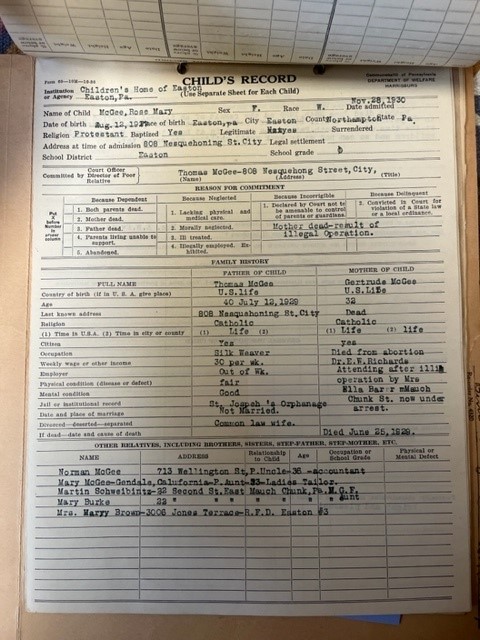 Form
CHILD'S RECORD
Commonwealth of Pennsylvania
DEPARTMENT OF WELFARE
HARRISBURG
Institution or Agency Children's Home of Easton
Easton,Pa.
(Use Separate Sheet for Each Child)
Name of Child McGee,Rose Mary Sex F. Race W. Date admitted Nov.28,1930
Date of birth Aug.12, Place of birth Easton,pa City Easton County Northampton State Pa.
Religion Protestant Baptized Yes Legitimate yes Surrendered
Address at time of admission 808 Nesquehoning St.City Legal settlement
School District Easton School grade
Committed by Court Officer Director of Poor Relative Thomas McGee-808 Nesquehong Street,City,
(Name) (Address) (Title)
REASON FOR COMMITMENT
Put X before Number in proper column
Because Dependent Because Neglected Because Incorrigible Because Delinquent
1. Both parents dead.
2. Mother dead.
3. Father dead.
4. Parents living unable to support.
5. Abandoned.
1. Lacking physical and medical care.
2. Morally neglected.
3. Ill treated.
4. Illegally employed. Exhibited.
1. Declared by Court not to be amenable to control of parents or guardians.
2. Convicted in Court for violation of a State law or a local ordinance.
Mother dead-result of
illegal Operation.
FAMILY HISTORY
FATHER OF CHILD MOTHER OF CHILD
FULL NAME Thomas McGee Gertrude McGee
Country of birth (if in U. S. A. give place) U.S.life U.S.Life
Age 40 July 12,1929 32
Last known address 808 Nesquehoning St.City Dead
Religion Catholic Catholic
(1) Time in U.S.A. (2) Time in city or county (1) Life (2) (1) life (2) life
Citizen Yes yes
Occupation Silk Weaver Died from abortion
Weekly wage or other income 30 per wk. Dr.E.W.Richards
Employer Out of Wk. Attending after
Physical condition (disease or defect) fair operation by Mrs
Mental condition Good Ella Barr Mauch
Jail or institutional record St. Jospeh's Orphanage Chunk St. now under
Date and place of marriage Not Married. arrest.
Divorced—deserted—separated Common law wife.
If dead—date and cause of death Died June 25,1929.
OTHER RELATIVES, INCLUDING BROTHERS, SISTERS, STEP-FATHER, STEP-MOTHER, ETC.
NAME ADDRESS Relationship to Child Age Occupation or School Grade Physical or Mental Defect
Norman McGee 713 Wellington St,P.Uncle-36 -accountant
Mary McGee-Gondale,Calufornia-P.Aunt-33-Ladies Tailor.
Martin Schweibintz-22 Second St.East Mauch Chunk,Pa.M.G.F.
Mary Burke 22 " " " " " " Aunt
Mrs. Maryy Brown-3006 Jones Terrace-R.F.D. Easton #3